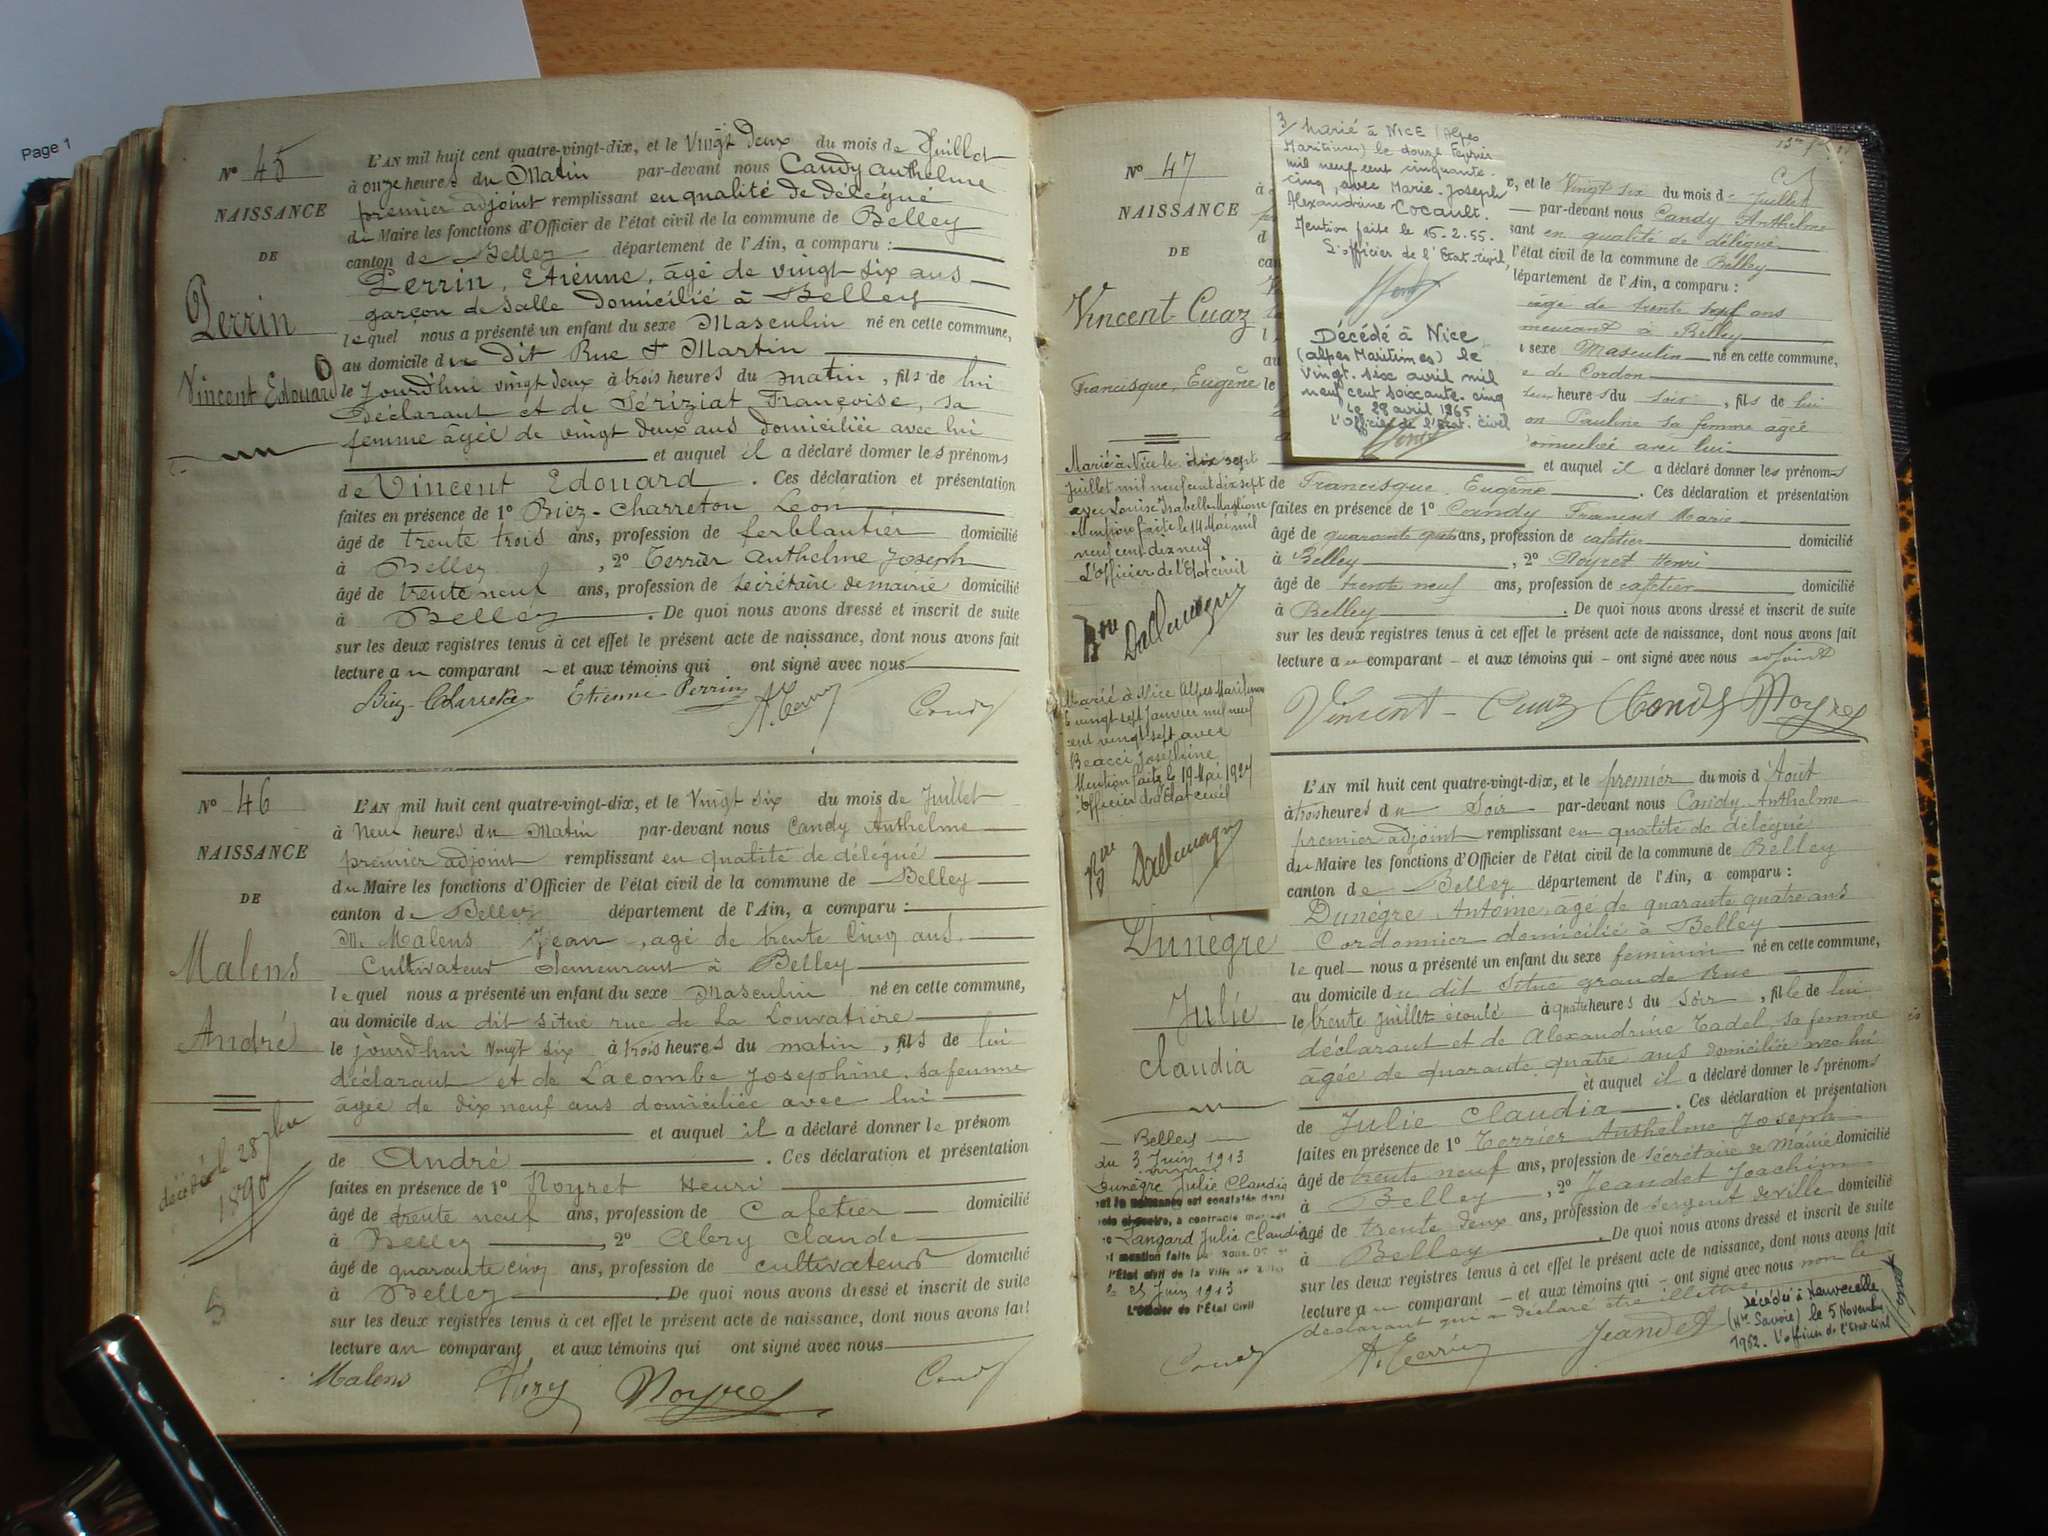 Page 1
N° 45
NAISSANCE
DE
Perrin
Vincent Edouard
L'AN mil huit cent quatre-vingt-dix, et le Vingt Deux du mois de Juillet
à onze heures du Matin par-devant nous Candy Anthelme
premier adjoint remplissant en qualité de délégué
du Maire les fonctions d'Officier de l'état civil de la commune de Belley
canton de Belley département de l'Ain, a comparu :
Perrin, Etienne, âgé de vingt-six ans
garçon de salle Domicilié à Belley
lequel nous a présenté un enfant du sexe Masculin né en cette commune,
au domicile du dit Rue St Martin
le Jourd'hui vingt deux à trois heures du matin, fils de lui
Déclarant et de Sériziat Françoise, sa
femme âgée de vingt deux ans domiciliée avec lui
et auquel il a déclaré donner les prénoms
de Vincent Edouard. Ces déclaration et présentation
faites en présence de 1° Biez-Charreton, Léon
âgé de trente trois ans, profession de ferblantier domicilié
à Belley, 2° Terrier Anthelme Joseph
âgé de trente neuf ans, profession de secrétaire de mairie domicilié
à Belley. De quoi nous avons dressé et inscrit de suite
sur les deux registres tenus à cet effet le présent acte de naissance, dont nous avons fait
lecture au comparant et aux témoins qui ont signé avec nous
Biez-Charreton Etienne Perrin A. Terrier Candy
N° 46
NAISSANCE
DE
Malens
André
décédé le 28 7bre
1890
5
L'AN mil huit cent quatre-vingt-dix, et le Vingt six du mois de Juillet
à Neuf heures du Matin par-devant nous Candy Anthelme
premier adjoint remplissant en qualité de délégué
du Maire les fonctions d'Officier de l'état civil de la commune de Belley
canton de Belley département de l'Ain, a comparu :
M. Malens Jean, agé de trente cinq ans
Cultivateur demeurant à Belley
lequel nous a présenté un enfant du sexe Masculin né en cette commune,
au domicile du dit situé rue de La Louvatière
le jourd'hui vingt six à trois heures du matin, fils de lui
déclarant et de Lacombe Josephine, sa femme
âgée de dix neuf ans domiciliée avec lui
et auquel il a déclaré donner le prénom
de André. Ces déclaration et présentation
faites en présence de 1° Noyret Henri
âgé de trente neuf ans, profession de Cafetier domicilié
à Belley, 2° Abry Claude
âgé de quarante cinq ans, profession de cultivateur domicilié
à Belley. De quoi nous avons dressé et inscrit de suite
sur les deux registres tenus à cet effet le présent acte de naissance, dont nous avons fait
lecture au comparant et aux témoins qui ont signé avec nous
Malens Abry Noyret Candy
N° 47
NAISSANCE
DE
Vincent-Cuaz
Francisque, Eugène
Marié à Nice le dix sept
Juillet mil neuf cent dix sept
avec Louise Isabelle Maglione
Mention faite le 14 Mai mil
neuf cent dix neuf
L'Officier de l'Etat civil
Bon Dallemagne
Marié à Nice Alpes Maritimes
le vingt sept Janvier mil neuf
cent vingt sept avec
Beacci Joséphine
Mention faite le 19 Mai 1927
l'Officier de l'Etat civil
Bon Dallemagne
3/ Marié à NICE (Alpes
Maritimes) le douze Février
mil neuf cent cinquante-
cinq, avec Marie-Joseph
Alexandrine Cocault.
Mention faite le 16-2-55.
L'officier de l'Etat-civil,
Décédé à Nice
(alpes Maritimes) le
vingt-six avril mil
neuf cent soixante-cinq
Le 28 avril 1965
L'Officier de l'Etat-civil
et le Vingt six du mois de Juillet
par-devant nous Candy Anthelme
en qualité de délégué
l'état civil de la commune de Belley
département de l'Ain, a comparu :
âgé de trente sept ans
demeurant à Belley
sexe Masculin né en cette commune,
de Cordon
heures du soir, fils de lui
Pauline sa femme agée
domiciliée avec lui
et auquel il a déclaré donner les prénoms
de Francisque, Eugène. Ces déclaration et présentation
faites en présence de 1° Candy Francois Marie
âgé de quarante quatre ans, profession de cafetier domicilié
à Belley, 2° Noyret Henri
âgé de trente neuf ans, profession de cafetier domicilié
à Belley. De quoi nous avons dressé et inscrit de suite
sur les deux registres tenus à cet effet le présent acte de naissance, dont nous avons fait
lecture au comparant et aux témoins qui ont signé avec nous adjoint
Vincent-Cuaz Candy Noyret
Dunègre
Julie
Claudia
L'AN mil huit cent quatre-vingt-dix, et le premier du mois d'Août
à trois heures du Soir par-devant nous Candy Anthelme
premier adjoint remplissant en qualité de délégué
du Maire les fonctions d'Officier de l'état civil de la commune de Belley
canton de Belley département de l'Ain, a comparu :
Dunègre Antoine, âgé de quarante quatre ans
Cordonnier domicilié à Belley
lequel nous a présenté un enfant du sexe feminin né en cette commune,
au domicile du dit situé grande Rue
le trente juillet écoulé à quatre heures du soir, fille de lui
déclarant et de Alexandrine Tadel, sa femme
âgée de quarante quatre ans domiciliée avec lui
et auquel il a déclaré donner les prénoms
de Julie Claudia. Ces déclaration et présentation
faites en présence de 1° Terrier Anthelme Joseph
âgé de trente neuf ans, profession de Secrétaire de Mairie domicilié
à Belley, 2° Jeandet Joachim
âgé de trente deux ans, profession de sergent de ville domicilié
à Belley. De quoi nous avons dressé et inscrit de suite
sur les deux registres tenus à cet effet le présent acte de naissance, dont nous avons fait
lecture au comparant et aux témoins qui ont signé avec nous non le
déclarant qui a déclaré être illettré
Candy A. Terrier Jeandet
Belley
du 3 Juin 1913
Dunègre Julie Claudia
et la naissance est constatée dans
a contracté mariage
Langard Julie Claudia
et mention faite par nous
l'État civil de la Ville
le 25 Juin 1913
L'Officier de l'État Civil
Décédée à Neuvecelle
(Hte Savoie) le 5 Novembre
1962. L'officier de l'Etat-civil